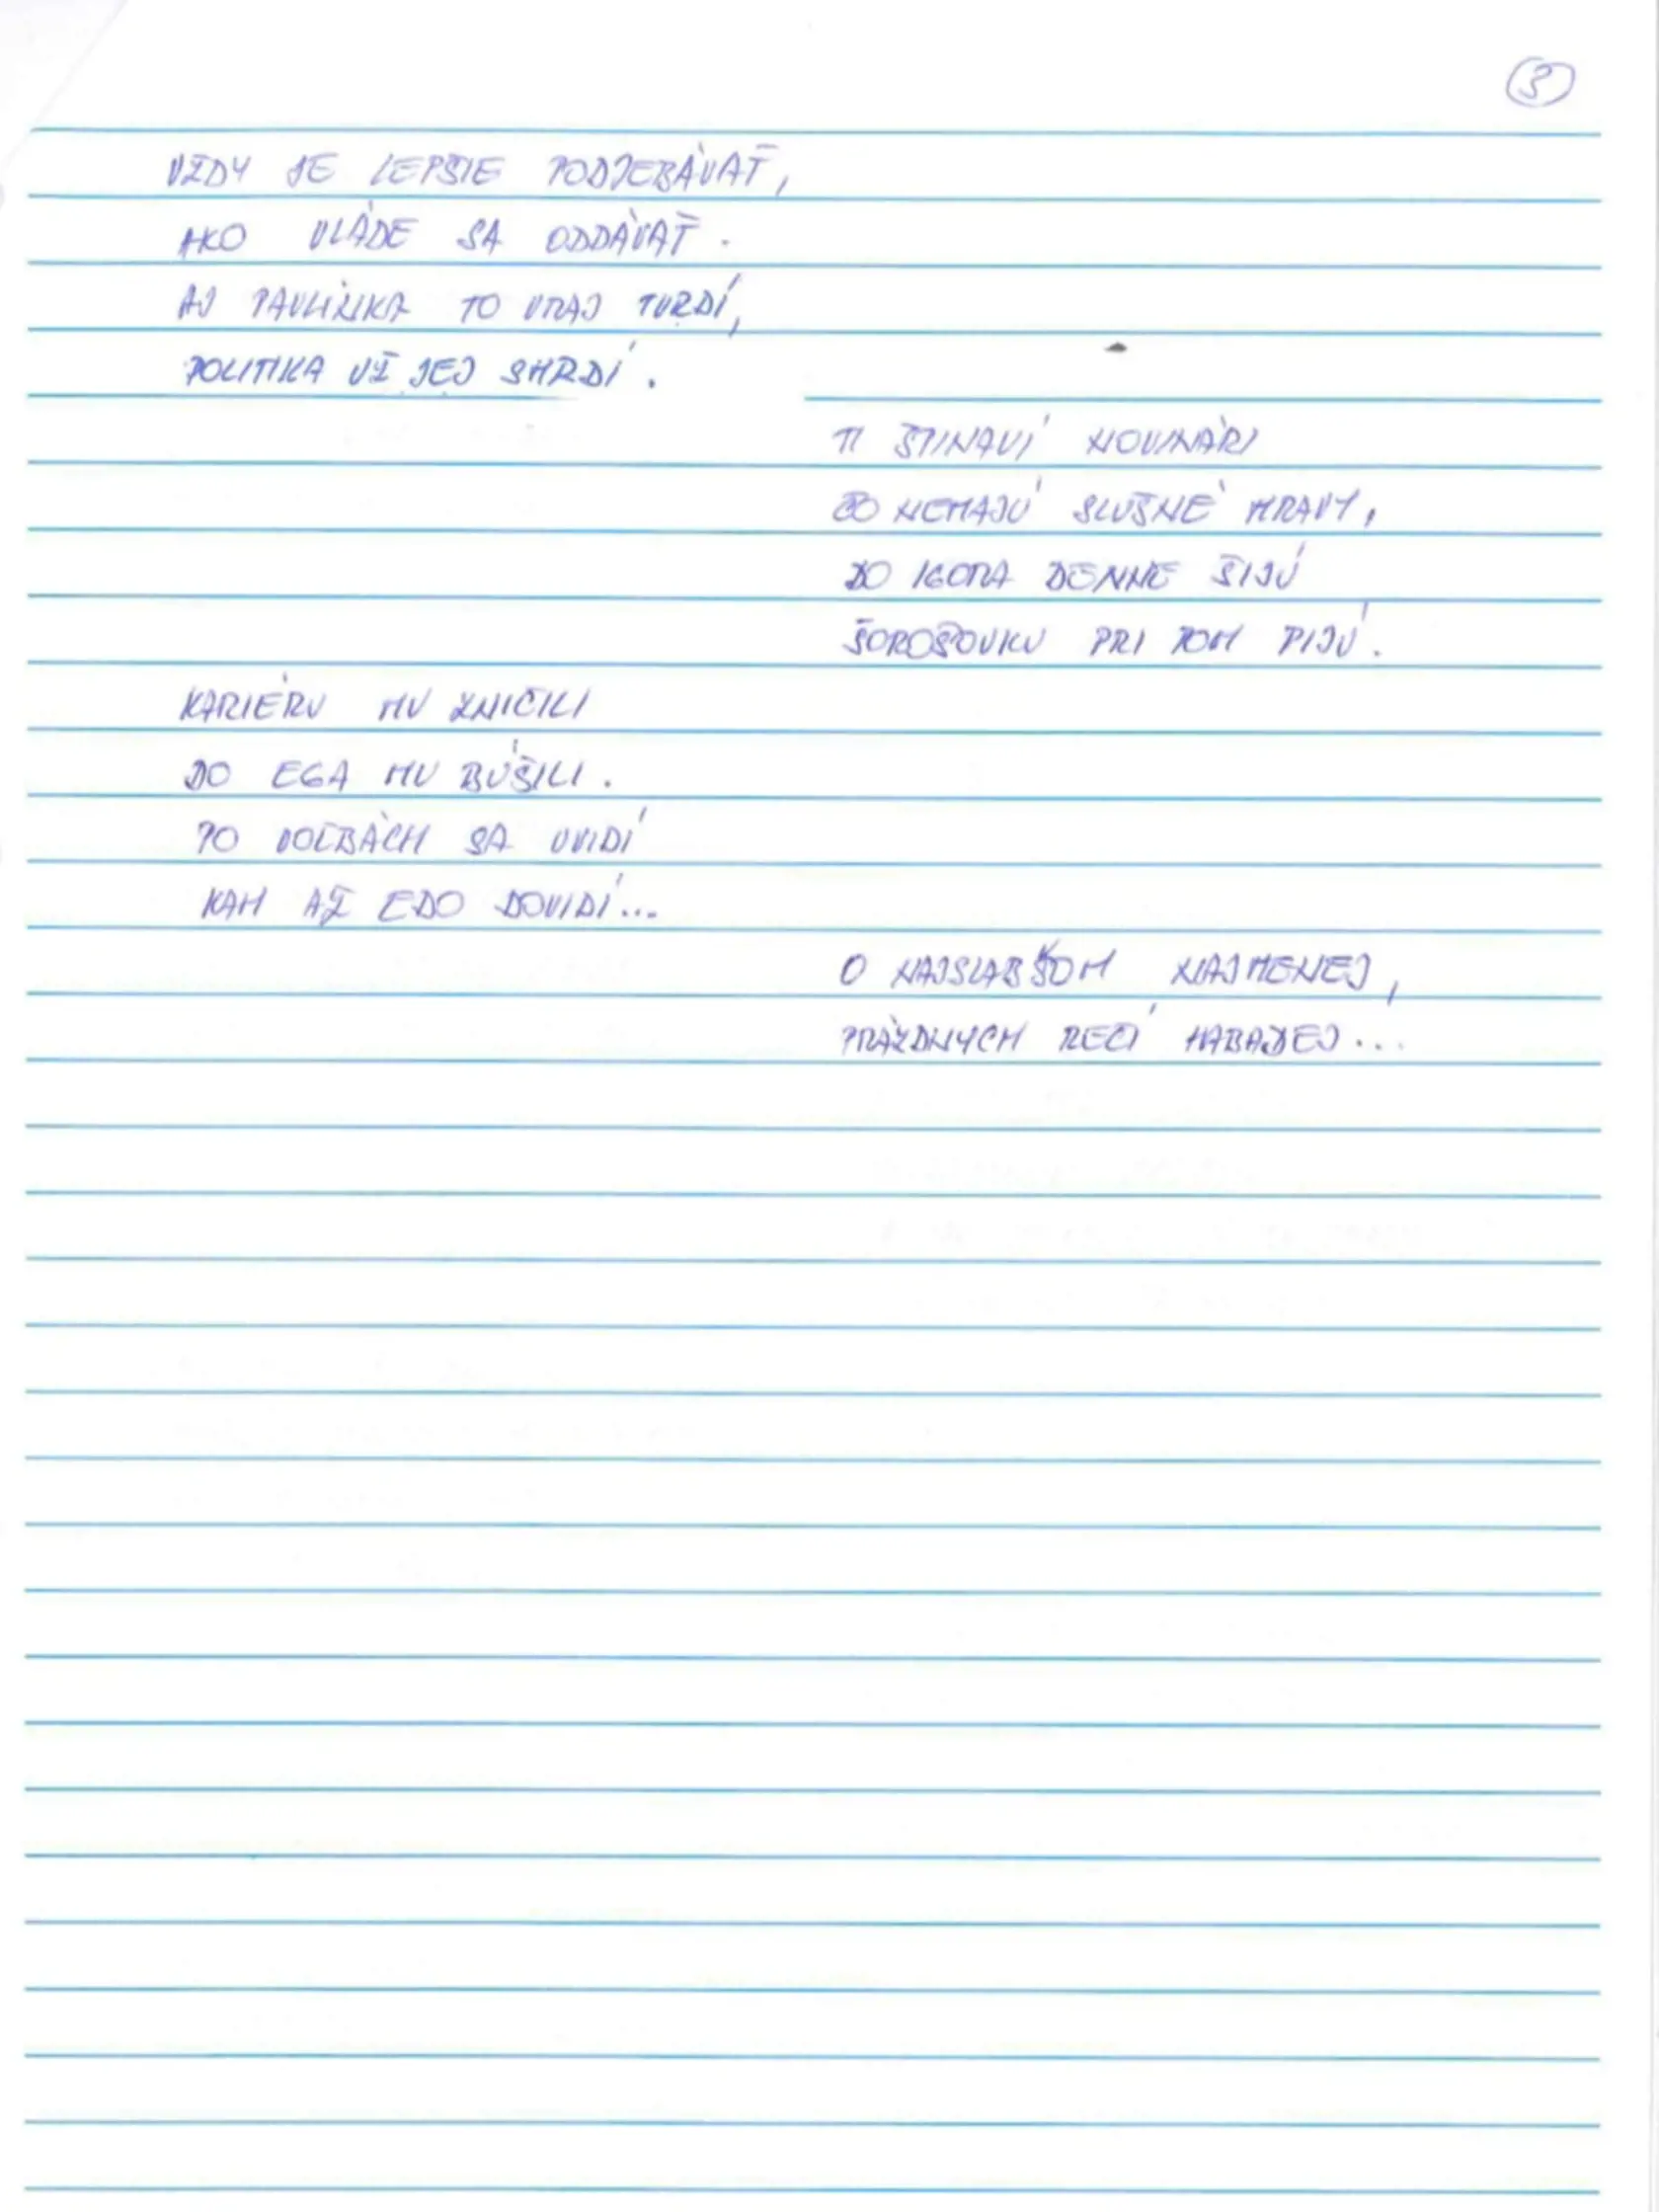 3
VŽDY JE LEPŠIE PODJEBÁVAŤ,
AKO VLÁDE SA ODDÁVAŤ.
AJ PAVLÍNKA TO VRAJ TVRDÍ,
POLITIKA UŽ JEJ SMRDÍ.
TÍ ŠPINAVÍ NOVINÁRI
ČO NEMAJÚ SLUŠNÉ MRAVY,
DO IGORA DENNE ŠIJÚ
ŠOROŠOVKU PRI TOM PIJÚ.
KARIÉRU MU ZNIČILI
DO EGA MU BÚŠILI.
PO VOĽBÁCH SA UVIDÍ
KAM AŽ EDO DOVIDÍ...
O NAJSLABŠOM NAJMENEJ,
PRÁZDNYCH REČÍ HABADEJ...